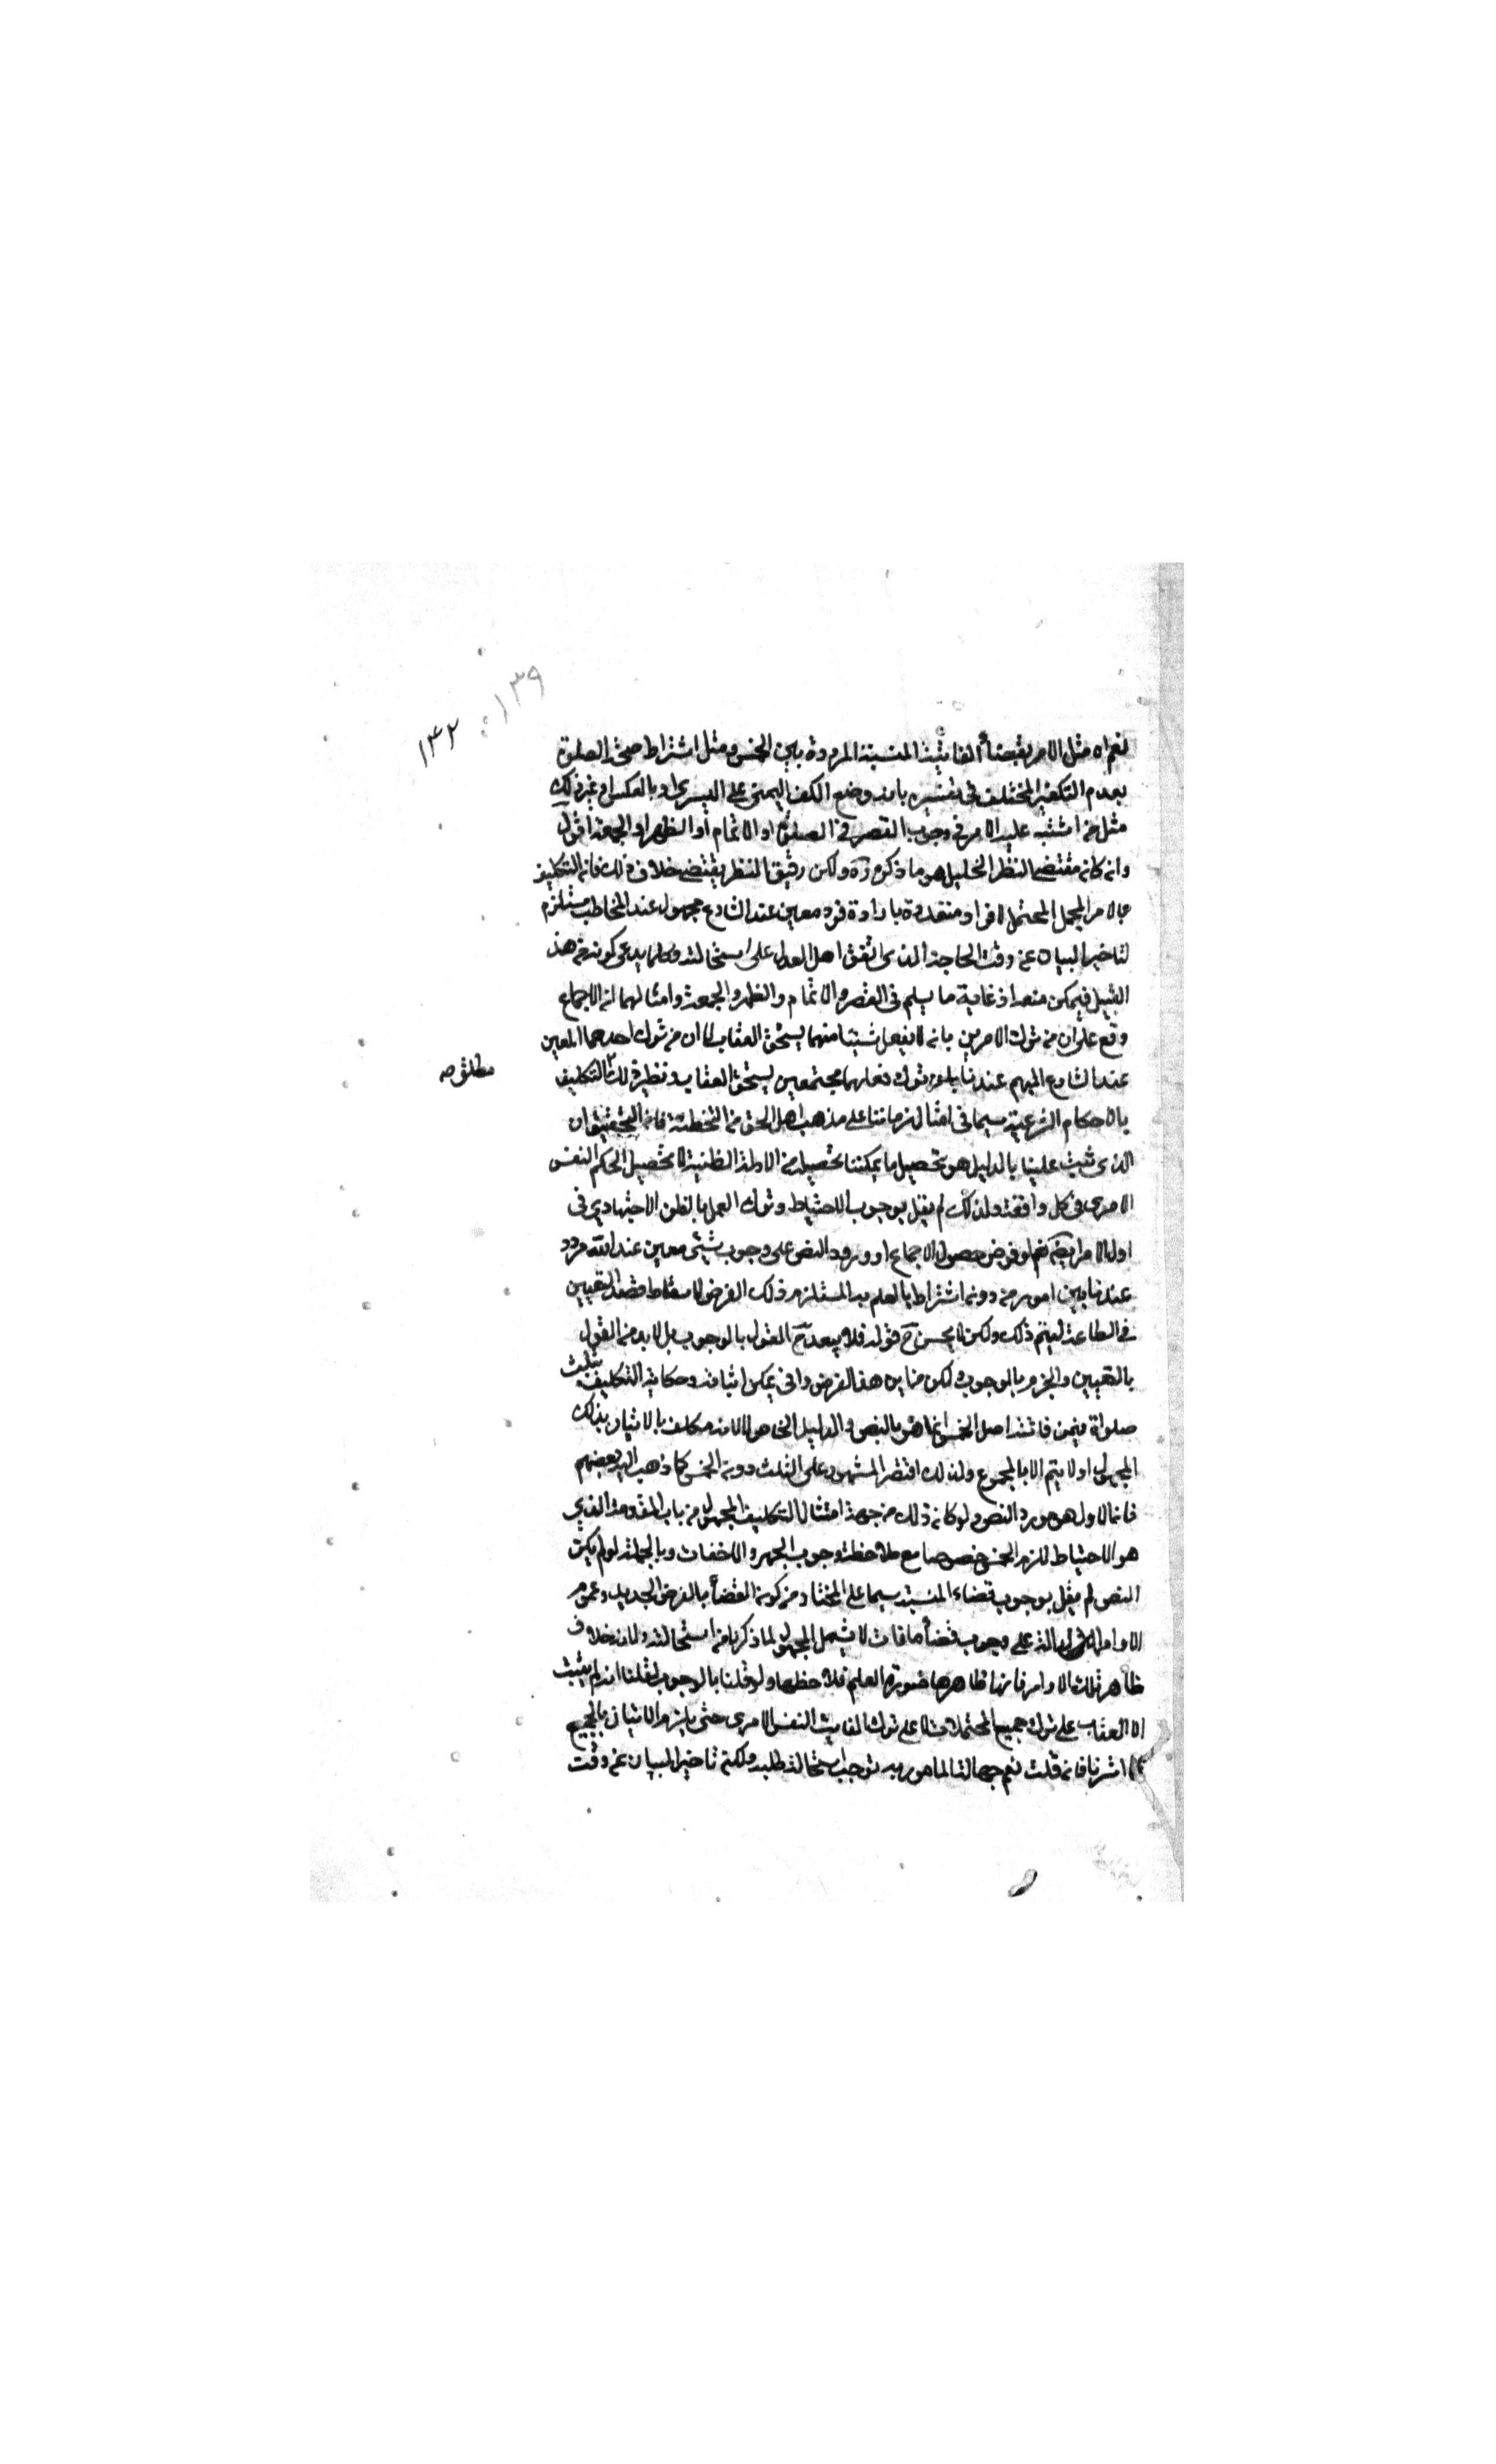 ١٣٩
١٤٢
نعم اه مثل الامر بقضاء الفائتة المنسية المرددة بين الخمس ومثل اشتراط صحة الصلوة
بعدم التكفير المختلف في تفسيره بانه وضع الكف اليمنى على اليسرى او بالعكس او غير ذلك
مثل من اشتبه عليه الامر في وجوب القصر في الصلوة او الاتمام او الظهر او الجمعة اقول
وان كانه مقتضى النظر الجليل هو ما ذكره ره ولكن دقيق النظر يقتضى خلاف ذلك فان التكليف
بالامر المجمل المحتمل لافراد متعددة بارادة فرد معين عند الشارع مجهول عند المخاطب مستلزم
لتاخير البيان عن وقت الحاجة الذى اتفق اهل العدل على استحالته وكلما يدعى كونه من هذا
القبيل فيمكن منعه اذ غاية ما يسلم فى القصر والاتمام والظهر والجمعة وامثالهما ان الاجماع
وقع على ان من ترك الامرين بانه لا يفعل شيئا منهما يستحق العقاب لا ان من ترك احدهما المعين
عند الشارع المبهم عندنا بلو ترك فعلهما مجتمعين يستحق العقاب ونظير ذلك التكليف
مطلق صه
بالاحكام الشرعية سيما فى امثال زماننا على مذهب اهل الحق من التخطئة فان التحقيق ان
الذى ثبت علينا بالدليل هو تحصيل ما يمكننا تحصيله من الادلة الظنية لا تحصيل الحكم النفس
الامرى فى كل واقعة ولذلك لم نقل بوجوب الاحتياط وترك العمل بالظن الاجتهادي فى
اول الامر ايضا نعم لو فرض حصول الاجماع او ورود النص على وجوب شيئى معين عند الله مردد
عندنا بين امور من دون اشتراط بالعلم به المستلزم ذلك الفرض لاسقاط قصد التعيين
في الطاعة ليتم ذلك ولكن لا يحسن ح قوله فلا يبعد ح القول بالوجوب بل لا بد من القول
بالتعيين والجزم بالوجوب ولكن من اين هذا الفرض وانى يمكن اثباته وحكاية التكليف بثلث
صلواة فيمن فاتته احد الخمس انما هو بالنص والدليل الخاص لا لانه مكلف بالاتيان بذلك
المجهول او لا يتم الا بالمجموع ولذلك اقتصر المشهور على الثلث دون الخمس كما ذهب اليه بعضهم
فان الاول هو مورد النص ولو كان ذلك من جهة امتثال التكليف المجهول من باب المقدمة الذي
هو الاحتياط للزم الخمس خصوصا مع ملاحظة وجوب الجهر والاخفات وبالجملة لو لم يكن
النص لم يقل بوجوب قضاء المنسية سيما على المختار من كون القضاء بالفرض الجديد وعموم
الاوامر الدالة على وجوب قضاء ما فات لا يشمل المجهول لما ذكرنا من استحالته ولانه خلاف
ظاهر تلك الاوامر فانها ظاهرها صورة العلم فلاحظها ولو قلنا بالوجوب لقلنا انه لم يثبت
الا العقاب على ترك جميع المحتملات لا على ترك الفايت النفس الامرى حتى يلزم الاتيان بالجميع
كما اشرنا فان قلت نعم جهالة المامور به توجب استحالة طلبه ولكنه تاخير البيان عن وقت